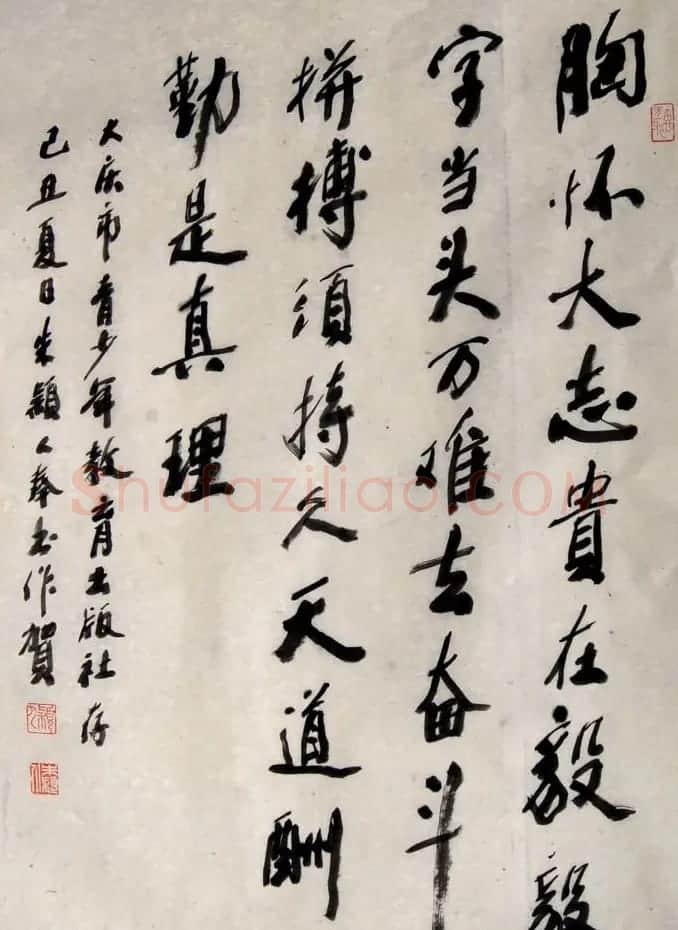 胸怀大志貴在毅毅
字当头万难去奋斗
拼搏須持久天道酬
勤是真理
大庆市青少年教育出版社存
己丑夏日朱颖人奉书作贺
Shufaziliao.com